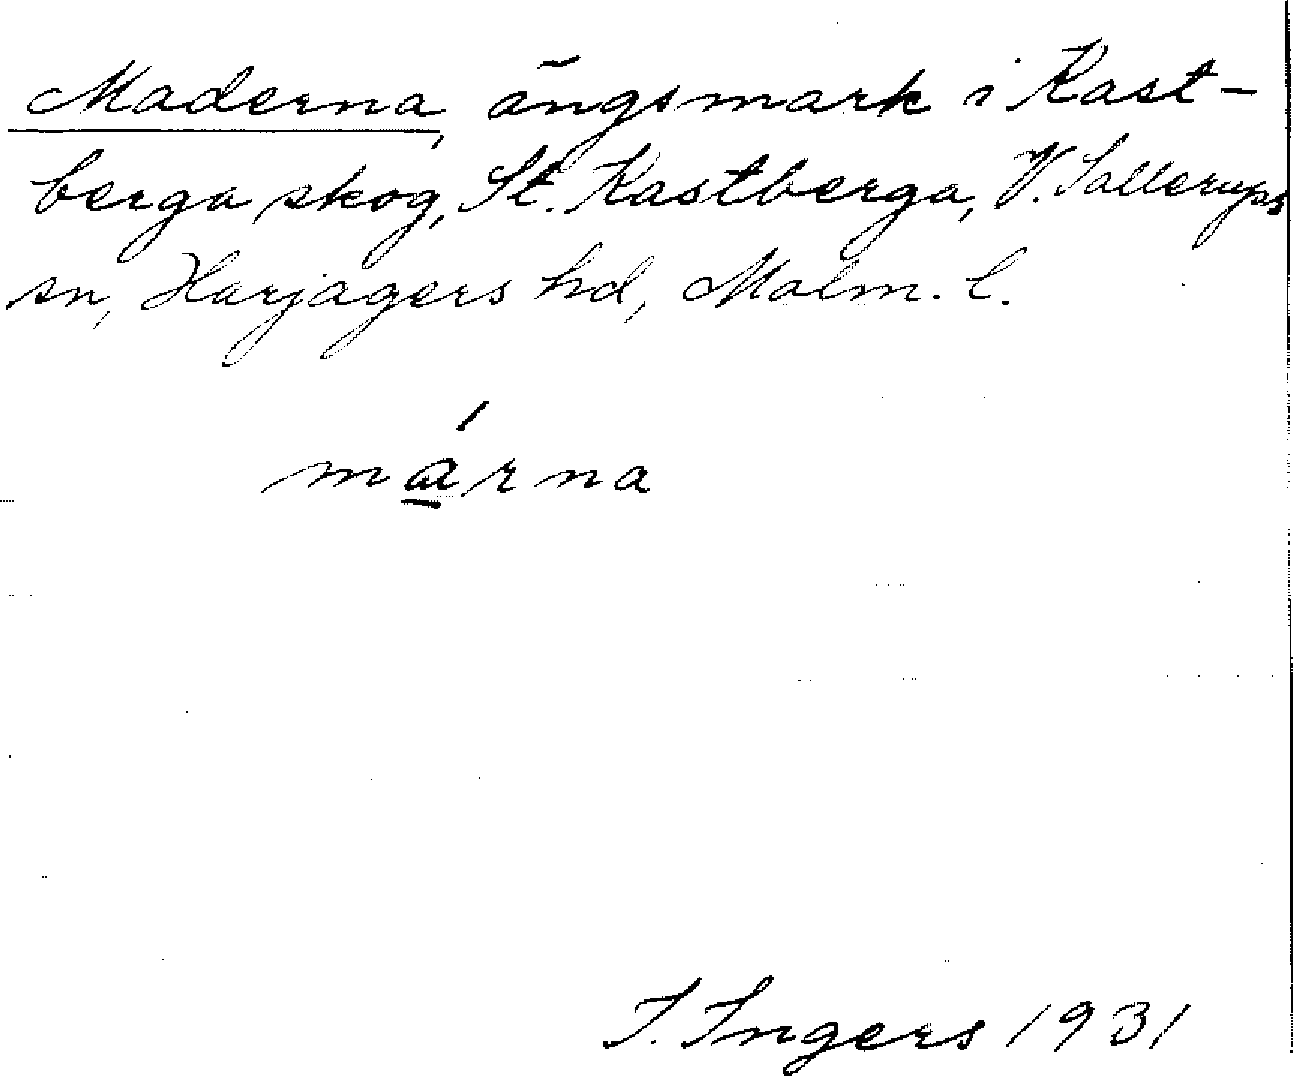 Maderna, ängsmark i Kast-
berga skog, St. Kastberga, V. Sallerups
sn, Harjagers hd, Malm. l.
márna
I. Ingers 1931